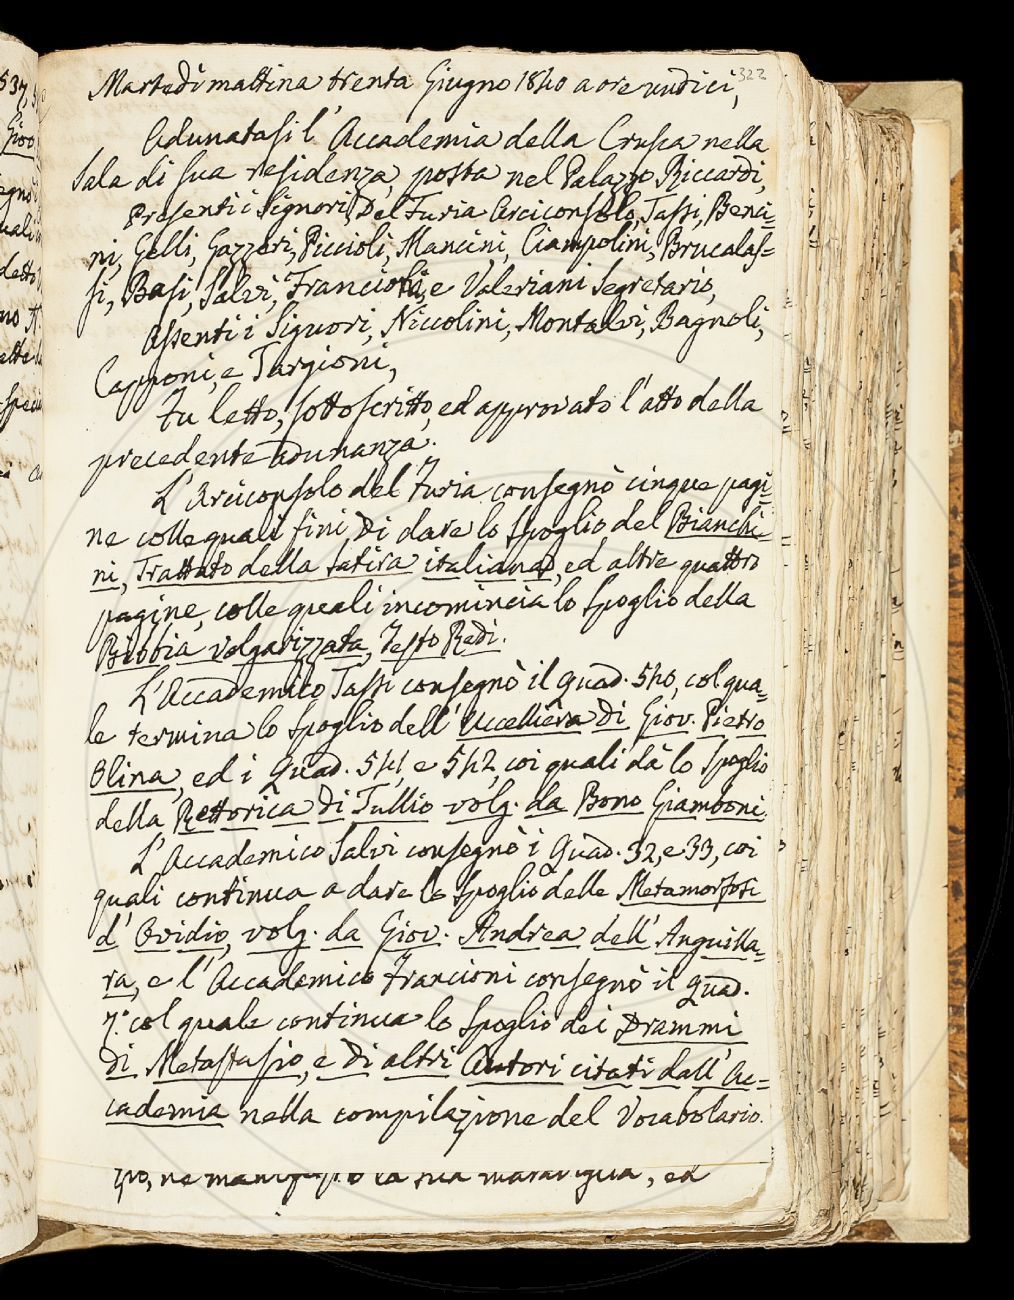 322
Martedì mattina trenta Giugno 1840 a ore undici,
Adunatasi l'Accademia della Crusca nella
Sala di sua residenza, posta nel Palazzo Riccardi,
Presenti i Signori, Del Furia Arciconsolo, Tassi, Benci=
ni, Gelli, Gazzeri, Piccioli, Mancini, Ciampolini, Brucalas=
si, Basi, Salvi, Francioni, e Valeriani Segretario,
Assenti i Signori, Niccolini, Montalvi, Bagnoli,
Capponi, e Targioni,
Fu letto, sottoscritto, ed approvato l'atto della
precedente adunanza.
L'Arciconsolo del Furia consegnò cinque pagi=
ne colle quali finì di dare lo spoglio del Bianchi=
ni, Trattato della satira italiana, ed altre quattro
pagine, colle quali incomincia lo spoglio della
Bibbia volgarizzata, Testo Redi.
L'Accademico Tassi consegnò il Quad. 540, col qua=
le termina lo spoglio dell'Uccelliera di Giov. Pietro
Olina, ed i Quad. 541, e 542, coi quali dà lo spoglio
della Rettorica di Tullio volg. da Bono Giamboni.
L'Accademico Salvi consegnò i Quad. 32, e 33, coi
quali continua a dare lo spoglio delle Metamorfosi
d'Ovidio, volg. da Giov. Andrea dell'Anguilla=
ra, e l'Accademico Francioni consegnò il Quad.
7.° col quale continua lo spoglio dei Drammi
di Metastasio, e di altri Autori citati dall'Ac=
cademia nella compilazione del Vocabolario.
la sua maraviglia, ed